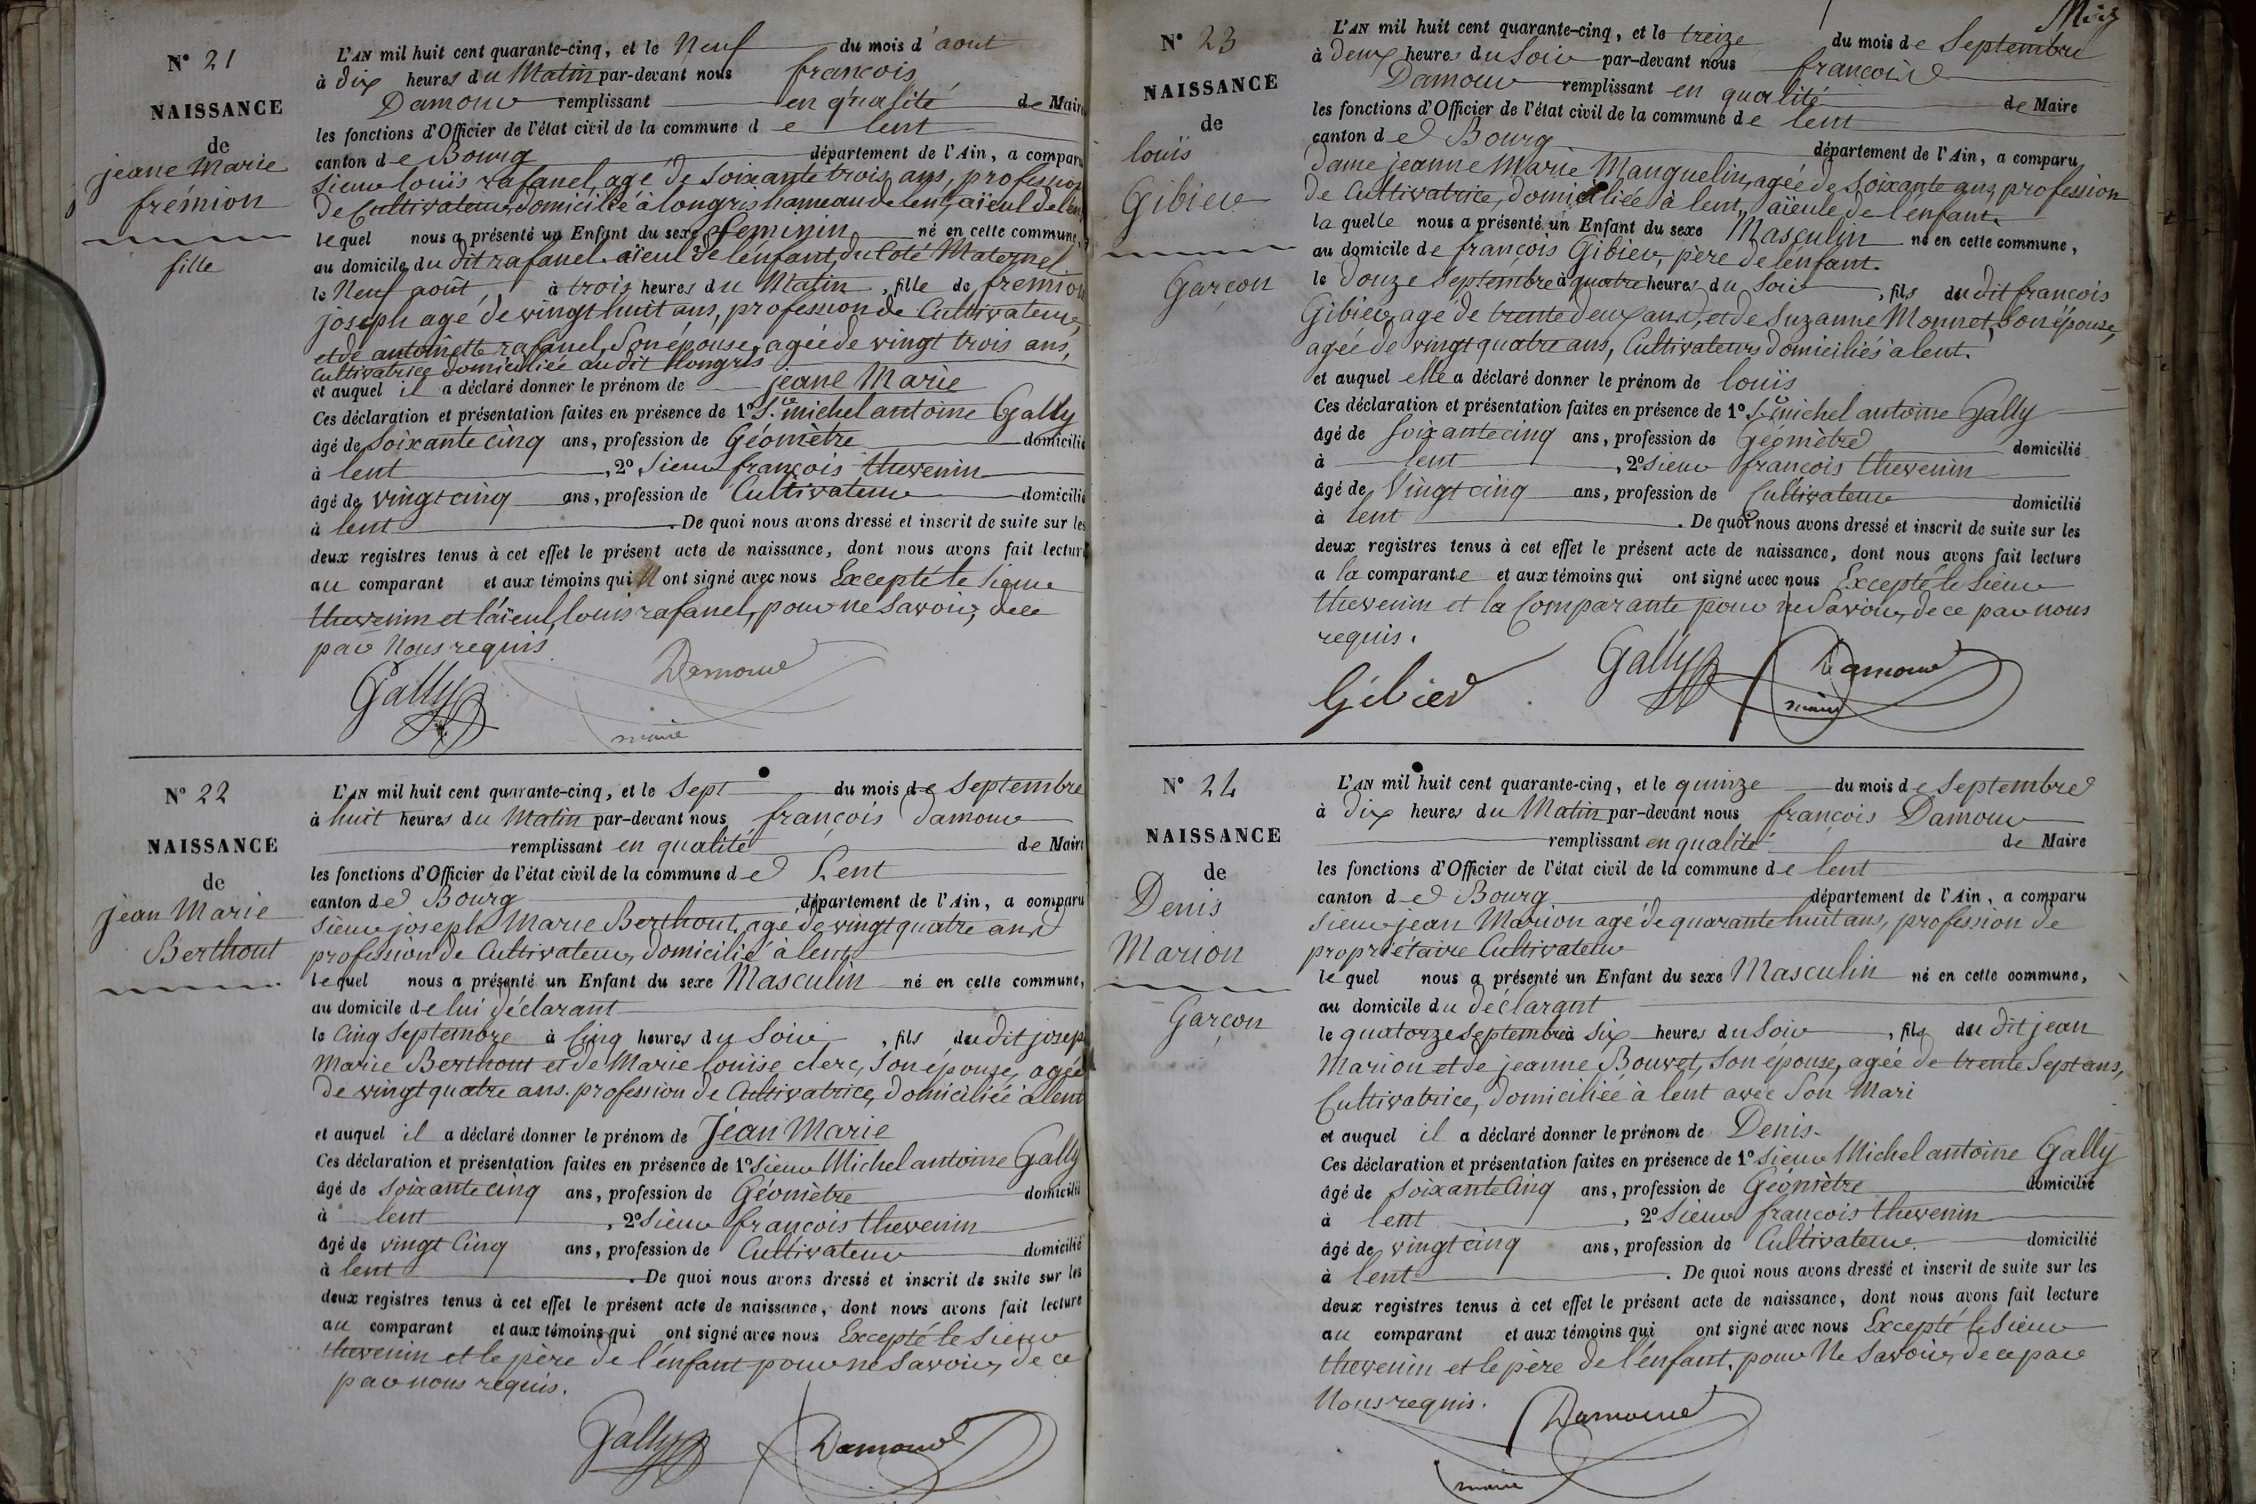 N° 21
NAISSANCE
de
jeane Marie
frémion
fille
L'AN mil huit cent quarante-cinq, et le Neuf du mois d'aout
à dix heures du Matin par-devant nous françois
Damour remplissant en qualité de Maire
les fonctions d'Officier de l'état civil de la commune de lent
canton de Bourg département de l'Ain, a comparu
Sieur louis rafanel, agé de Soixante trois ans, profession
de Cultivateur, domicilié à longris hameau de lent, aïeul de l'en
lequel nous a présenté un Enfant du sexe Feminin né en cette commune,
au domicile du dit rafanel, aïeul de l'énfant, du Coté Maternel
le Neuf août à trois heures du Matin, fille de fremion
joseph agé de vingt huit ans, profession de Cultivateur,
et de antoinette rafanel, Son épouse, agée de vingt trois ans,
Cultivatrice domiciliée au dit longris
et auquel il a déclaré donner le prénom de jeane Marie
Ces déclaration et présentation faites en présence de 1° S.r michel antoine Gally
âgé de Soixante cinq ans, profession de Géomètre domicilié
à lent, 2° Sieur françois thevenin
âgé de vingt cinq ans, profession de Cultivateur domicilié
à lent. De quoi nous avons dressé et inscrit de suite sur les
deux registres tenus à cet effet le présent acte de naissance, dont nous avons fait lecture
au comparant et aux témoins qui ont signé avec nous Excepté le Sieur
thevenin et l'aïeul, louis rafanel, pour ne Savoir, de ce
par Nous requis
Gally Damour
maire
N° 22
NAISSANCE
de
jean Marie
Berthout
L'AN mil huit cent quarante-cinq, et le Sept du mois de Septembre
à huit heures du Matin par-devant nous françois Damour
remplissant en qualité de Maire
les fonctions d'Officier de l'état civil de la commune de Lent
canton de Bourg département de l'Ain, a comparu
Sieur joseph Marie Berthout, agé de vingt quatre ans
profession de Cultivateur, domicilié à lent
lequel nous a présenté un Enfant du sexe Masculin né en cette commune,
au domicile de lui déclarant
le Cinq Septembre à Cinq heures du Soir, fils du dit josep
Marie Berthout et de Marie louise clerc, Son épouse, agée
de vingt quatre ans. profession de Cultivatrice, domiciliée à lent
et auquel il a déclaré donner le prénom de Jean Marie
Ces déclaration et présentation faites en présence de 1° Sieur Michel antoine Gally
âgé de Soixante cinq ans, profession de Géomètre domicilié
à lent, 2° Sieur françois thevenin
âgé de vingt Cinq ans, profession de Cultivateur domicilié
à lent. De quoi nous avons dressé et inscrit de suite sur les
deux registres tenus à cet effet le présent acte de naissance, dont nous avons fait lecture
au comparant et aux témoins qui ont signé avec nous Excepté le Sieur
thevenin et le père de l'énfant pour ne Savoir, de ce
par nous requis.
Gally Damour
N° 23
NAISSANCE
de
louïs
Gibier
Garçon
L'AN mil huit cent quarante-cinq, et le treize du mois de Septembre
à deux heures du Soir par-devant nous françois
Damour remplissant en qualité de Maire
les fonctions d'Officier de l'état civil de la commune de lent
canton de Bourg département de l'Ain, a comparu
dame jeanne Marie Manguelin, agée de Soixante ans, profession
de Cultivatrice, domiciliée à lent, aïeule de l'énfant.
laquelle nous a présenté un Enfant du sexe Masculin né en cette commune,
au domicile de françois Gibier, père de l'énfant.
le Douze Septembre à quatre heures du Soir, fils du dit françois
Gibier, agé de trente deux ans, et de Suzanne Monnet, Son épouse,
agée de vingt quatre ans, Cultivateurs domiciliés à lent.
et auquel elle a déclaré donner le prénom de louïs
Ces déclaration et présentation faites en présence de 1° S.r michel antoine Gally
âgé de Soixante cinq ans, profession de Géomètre domicilié
à lent, 2° Sieur françois thevenin
âgé de Vingt cinq ans, profession de Cultivateur domicilié
à lent. De quoi nous avons dressé et inscrit de suite sur les
deux registres tenus à cet effet le présent acte de naissance, dont nous avons fait lecture
a la comparante et aux témoins qui ont signé avec nous Excepté le Sieur
thevenin et la Comparante pour ne Savoir, de ce par nous
requis.
Gibier Gally Damour
maire
N° 24
NAISSANCE
de
Denis
Marion
Garçon
L'AN mil huit cent quarante-cinq, et le quinze du mois de Septembre
à dix heures du Matin par-devant nous françois Damour
remplissant en qualité de Maire
les fonctions d'Officier de l'état civil de la commune de lent
canton de Bourg département de l'Ain, a comparu
Sieur jean Marion agé de quarante huit ans, profession de
propriétaire Cultivateur
lequel nous a présenté un Enfant du sexe Masculin né en cette commune,
au domicile du déclarant
le quatorze Septembre à Six heures du Soir, fils du dit jean
Marion et de jeanne Bouvet, Son épouse, agée de trente Sept ans,
Cultivatrice, domiciliée à lent avec Son Mari
et auquel il a déclaré donner le prénom de Denis.
Ces déclaration et présentation faites en présence de 1° Sieur Michel antoine Gally
âgé de Soixante Cinq ans, profession de Géomètre domicilié
à lent, 2° Sieur françois thevenin
âgé de vingt cinq ans, profession de Cultivateur. domicilié
à lent. De quoi nous avons dressé et inscrit de suite sur les
deux registres tenus à cet effet le présent acte de naissance, dont nous avons fait lecture
au comparant et aux témoins qui ont signé avec nous Excepté le Sieur
thevenin et le père de l'énfant, pour Ne Savoir, de ce par
Nous requis.
Damour
maire